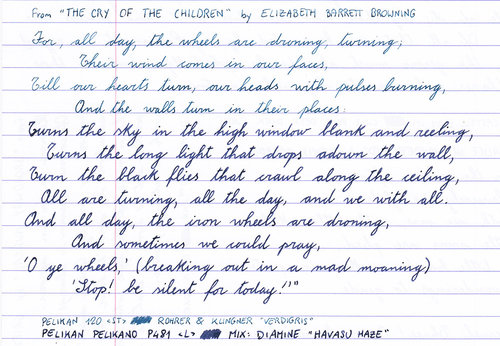 From "THE CRY OF THE CHILDREN" by ELIZABETH BARRETT BROWNING
For, all day, the wheels are droning, turning;
Their wind comes in our faces,
Till our hearts turn, our heads with pulses burning,
And the walls turn in their places:
Turns the sky in the high window blank and reeling,
Turns the long light that drops adown the wall,
Turn the black flies that crawl along the ceiling,
All are turning, all the day, and we with all.
And all day, the iron wheels are droning,
And sometimes we could pray,
'O ye wheels,' (breaking out in a mad moaning)
'Stop! be silent for today!'"
PELIKAN 120 <ST> ROHRER & KLINGNER "VERDIGRIS"
PELIKAN PELIKANO P481 <L> MIX: DIAMINE "HAVASU HAZE"